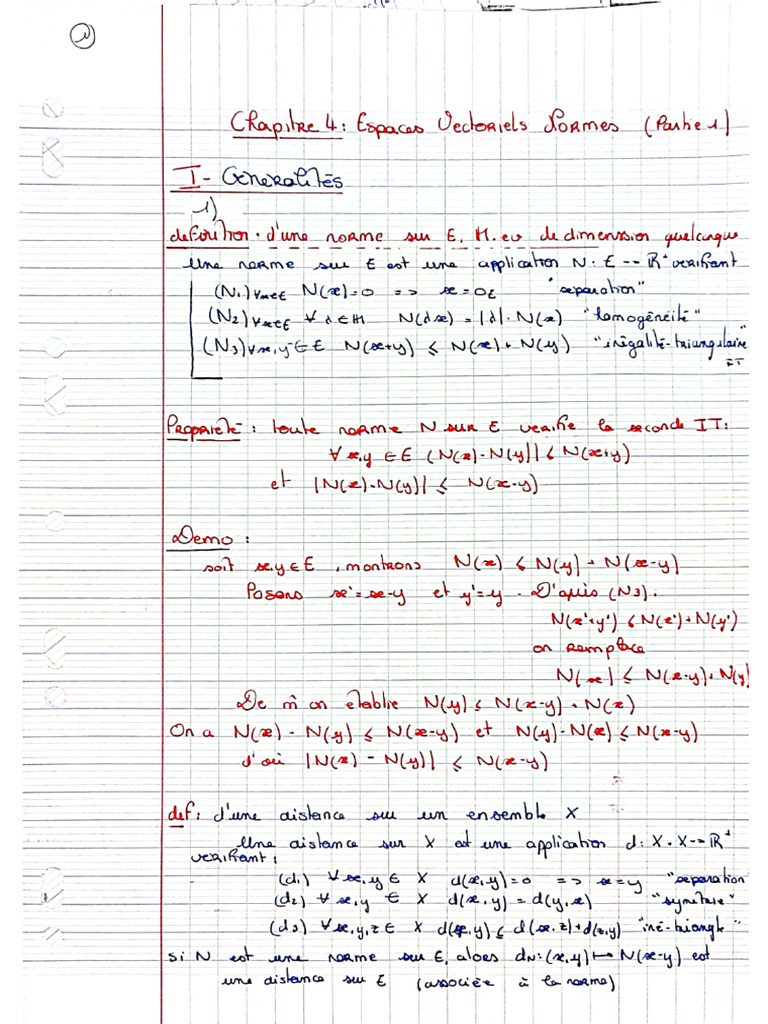 1
Chapitre 4 : Espaces Vectoriels Normes (Partie 1)
I - Generalités
1)
definition . d'une norme sur E, K.ev de dimenssion quelconque
Une norme sur E est une application N : E -> ℝ⁺ verifiant
(N1) ∀x∈E N(x)=0 => x=0E "separation"
(N2) ∀x∈E ∀λ∈K N(λx) = |λ|.N(x) "homogéneité"
(N3) ∀x,y∈E N(x+y) ≤ N(x)+N(y) "inégalité-triangulaire"
IT
Propriété : toute norme N sur E verifie la seconde IT:
∀x,y∈E |N(x)-N(y)| ≤ N(x+y)
et |N(x)-N(y)| ≤ N(x-y)
Demo :
soit x,y∈E , montrons N(x) ≤ N(y) + N(x-y)
Posons x'=x-y et y'=y . D'après (N3).
N(x'+y') ≤ N(x')+N(y')
on remplace
N(x) ≤ N(x-y)+N(y)
De m̂ on établie N(y) ≤ N(x-y) + N(x)
On a N(x) - N(y) ≤ N(x-y) et N(y)-N(x) ≤ N(x-y)
d'où |N(x) - N(y)| ≤ N(x-y)
def : d'une distance sur un ensemble X
Une distance sur X est une application d: X × X -> ℝ⁺
verifiant :
(d1) ∀x,y ∈ X d(x,y)=0 => x=y "separation"
(d2) ∀x,y ∈ X d(x,y) = d(y,x) "symetrie"
(d3) ∀x,y,z ∈ X d(x,y) ≤ d(x,z)+d(z,y) "iné-triangle"
si N est une norme sur E, alors dN:(x,y) ↦ N(x-y) est
une distance sur E (associée à la norme)